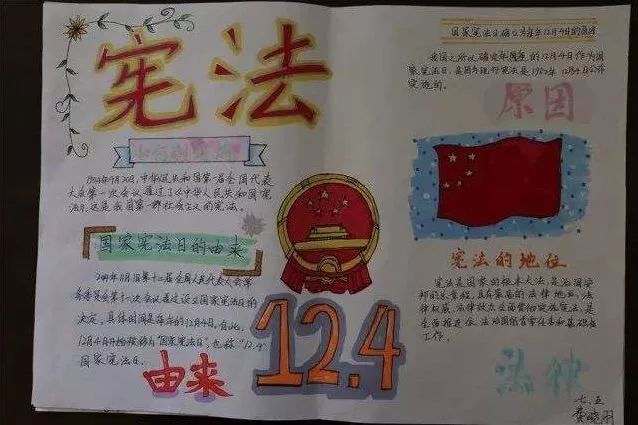 宪法
1954年9月20日,中华人民共和国第一届全国代表
大会第一次会议通过了《中华人民共和国宪
法》,这是我国第一部社会主义的宪法。
国家宪法日的由来
11月1日第十二届全国人民代表大会常
务委员会第十一次会议表决通过设立国家宪法日的
决定,具体时间是每年的12月4日,
12月4日 "国家宪法日",也称"12.4"
国家宪法日。
由来
12.4
国家宪法日确立为每年12月4日的原因
我国之所以确定 的12月4日作为国
家宪法日,是因为现行宪法是1982年12月4日公布
实施的。
原因
宪法的地位
宪法是国家的根本大法,是治国安
邦的总章程,具有最高的法律地位、法
律权威、法律效力。全面贯彻实施宪法,是
全面推进依法治国的首要任务和基础性
工作。
法律
七.五